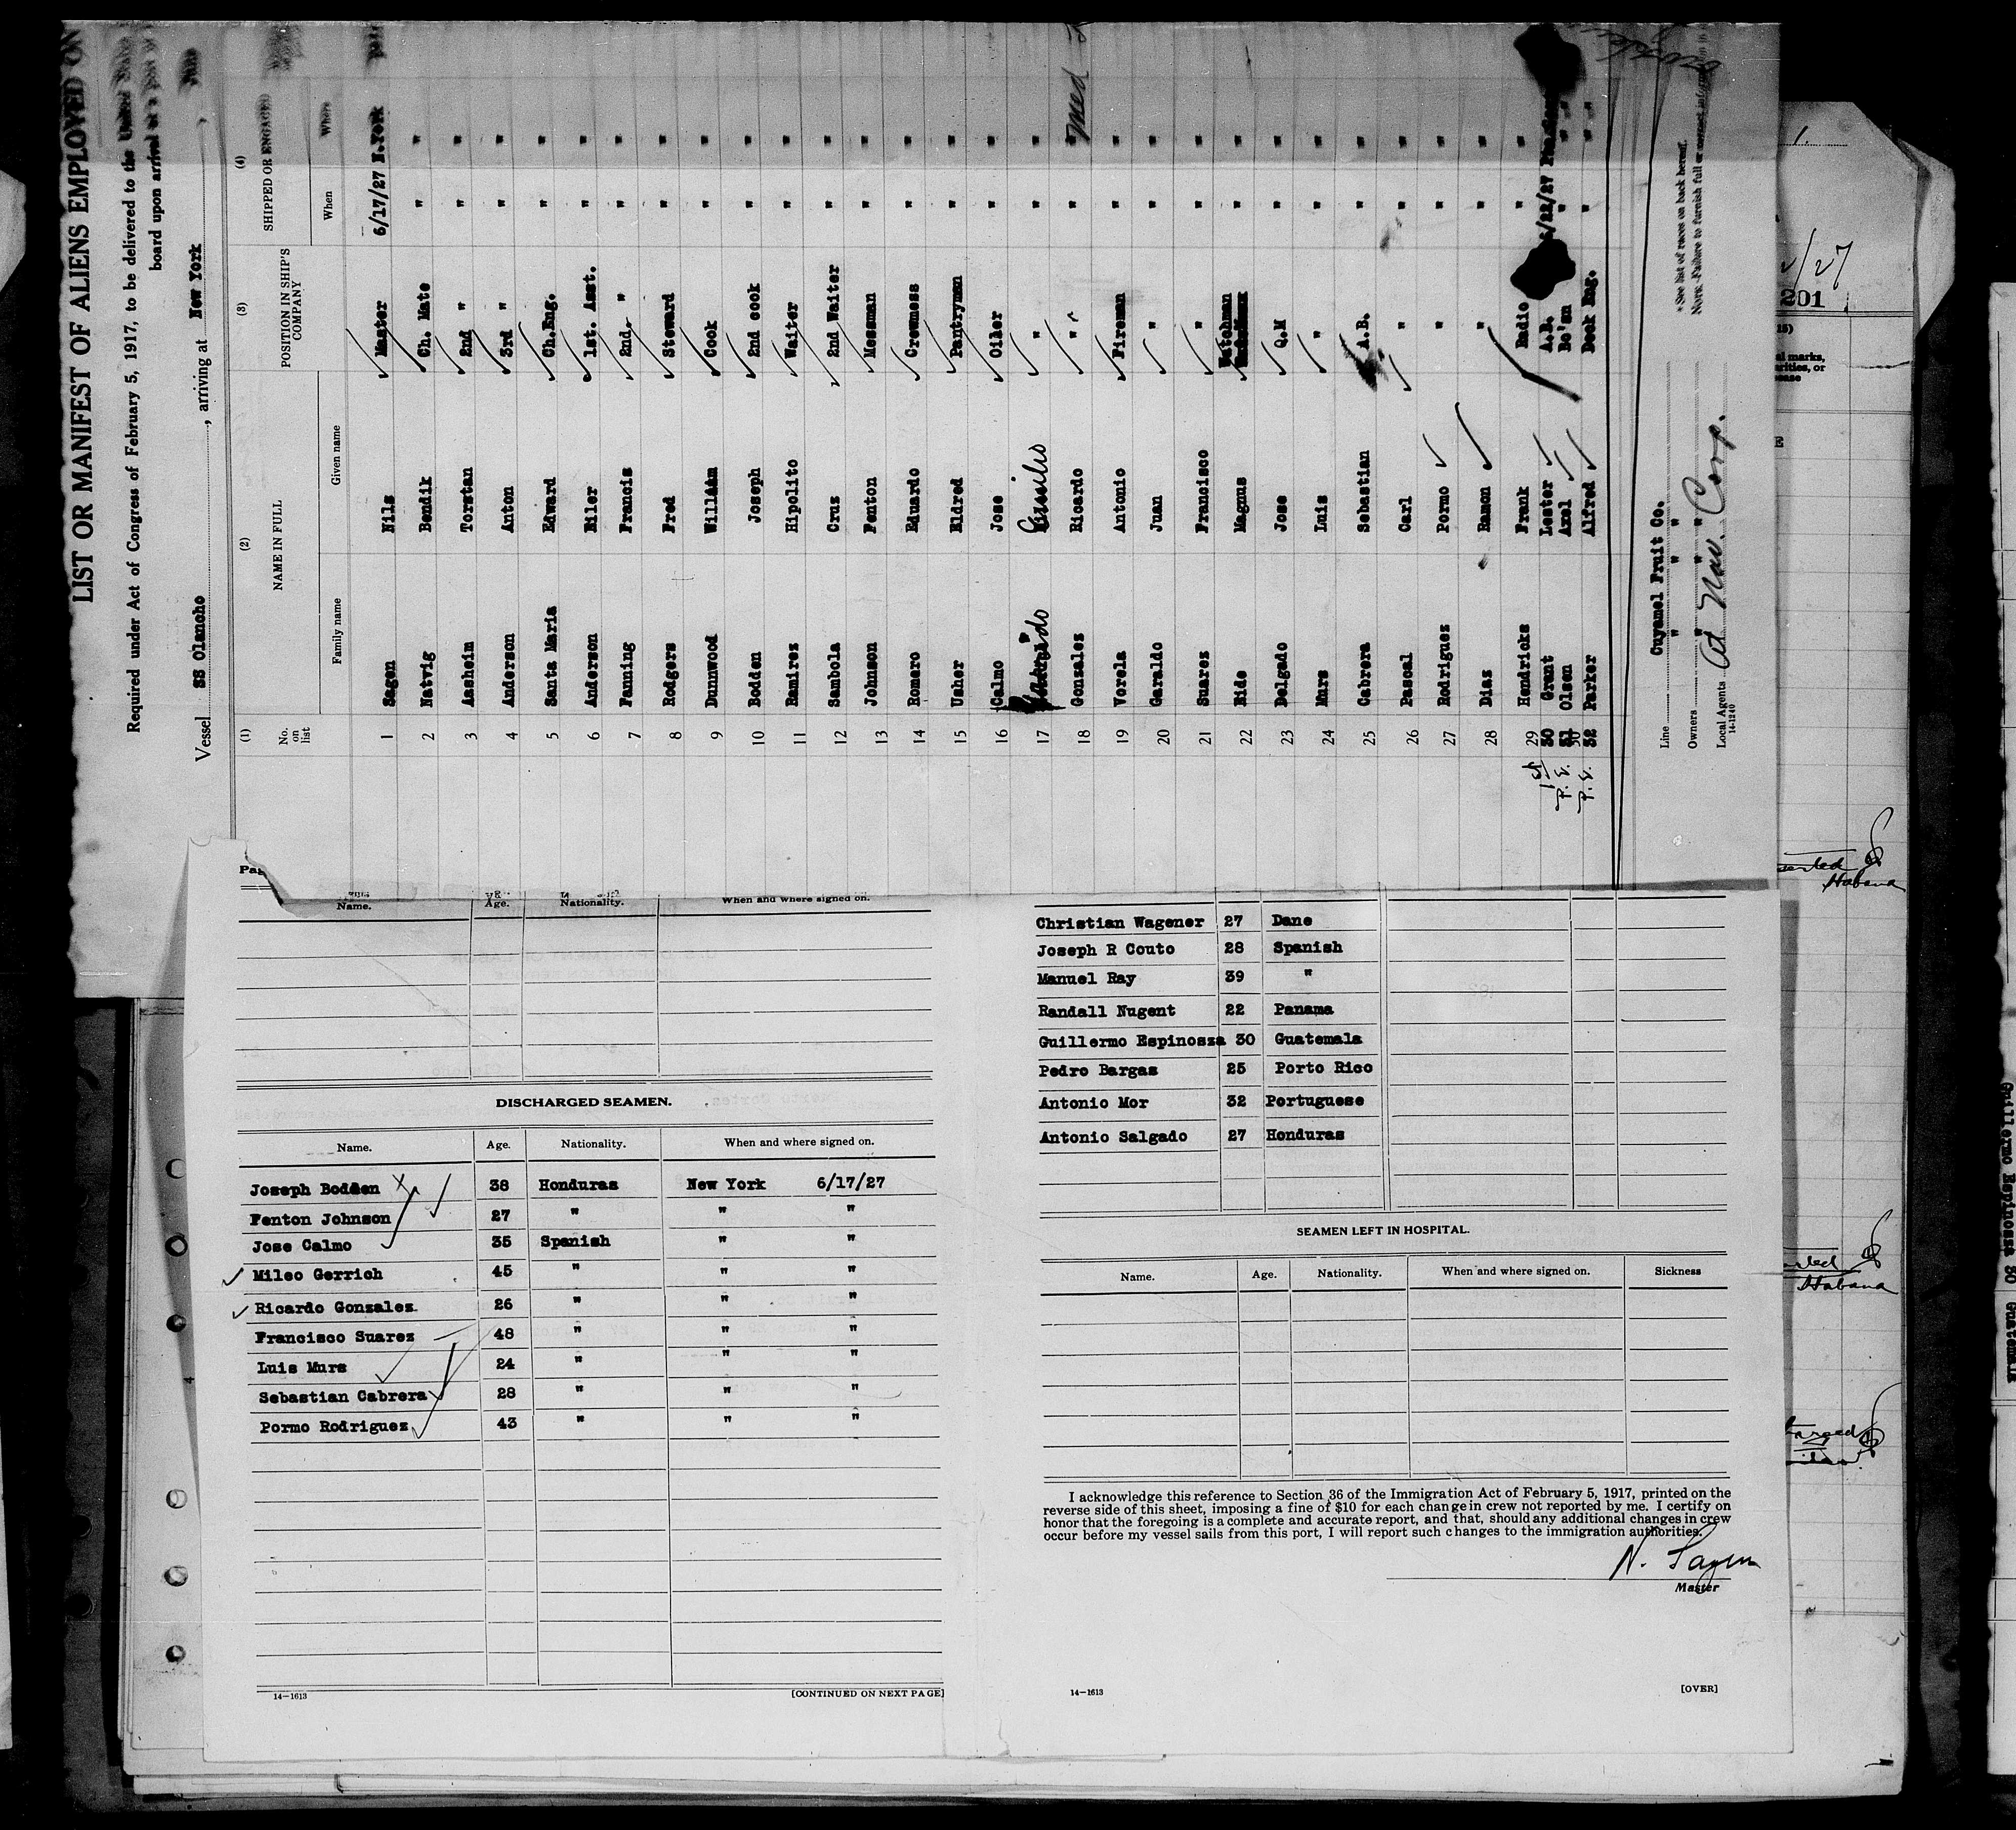 LIST OR MANIFEST OF ALIENS EMPLOYED ON
Required under Act of Congress of February 5, 1917, to be delivered to the United States
board upon arrival at a port of
Vessel SS Olancho, arriving at New York
(1) (2) (3) (4)
No. on list NAME IN FULL POSITION IN SHIP'S COMPANY SHIPPED OR ENGAGED
Family name Given name When Where
1 Sagen Nils Master 6/17/27 N.York
2 Natvig Bendik Ch. Mate " "
3 Aasheim Torstan 2nd " " "
4 Anderson Anton 3rd " " "
5 Santa Maria Edward Ch.Eng. " "
6 Anderson Eiler 1st. Asst. " "
7 Fanning Francis 2nd. " " "
8 Rodgers Fred Steward " "
9 Dunnwood William Cook " "
10 Bodden Joseph 2nd cook " "
11 Ramirez Hipolito Waiter " "
12 Sambola Cruz 2nd Waiter " "
13 Johnson Fenton Messman " "
14 Romero Eduardo Crewmess " "
15 Usher Eldred Pantryman " "
16 Calmo Jose Oiler " "
17 " " "
18 Gonzales Ricardo " " "
19 Vorela Antonio Fireman " "
20 Garaldo Juan " " "
21 Suarez Francisco " " "
22 Eide Magnus Watchman " "
23 Delgado Jose Q.M " "
24 Murs Luis " " "
25 Cabrera Sebastian A.B. " "
26 Pascal Carl " " "
27 Rodriguez Pormo " " "
28 Diaz Ramon " " "
29 Hendricks Frank Radio " "
30 Grant Lester A.B. 6/22/27
31 Olsen Axel Bo'sn " "
32 Parker Alfred Deck Eng. " "
1st
P.E.
P.E.
Line Cuyamel Fruit Co.
Owners " " "
Local Agents At Nav. Corp.
14-1240
*See list of races on back hereof.
NOTE. Failure to furnish full or correct
Name. Age. Nationality. When and where signed on.
DISCHARGED SEAMEN.
Name. Age. Nationality. When and where signed on.
Joseph Bodden 38 Honduras New York 6/17/27
Fenton Johnson 27 " " "
Jose Calmo 35 Spanish " "
Mileo Gerrich 45 " " "
Ricardo Gonzalez 26 " " "
Francisco Suarez 48 " " "
Luis Murs 24 " " "
Sebastian Cabrera 28 " " "
Pormo Rodriguez 43 " " "
14—1613 [CONTINUED ON NEXT PAGE]
Christian Wagener 27 Dane
Joseph R Couto 28 Spanish
Manuel Ray 39 "
Randall Nugent 22 Panama
Guillermo Espinosza 30 Guatemala
Pedro Bargas 25 Porto Rico
Antonio Mor 32 Portuguese
Antonio Salgado 27 Honduras
SEAMEN LEFT IN HOSPITAL.
Name. Age. Nationality. When and where signed on. Sickness
I acknowledge this reference to Section 36 of the Immigration Act of February 5, 1917, printed on the
reverse side of this sheet, imposing a fine of $10 for each change in crew not reported by me. I certify on
honor that the foregoing is a complete and accurate report, and that, should any additional changes in crew
occur before my vessel sails from this port, I will report such changes to the immigration authorities.
N. Sagen
Master
14—1613 [OVER]
201
Habana
Habana
Guillermo Espinosa 30 Guatemala